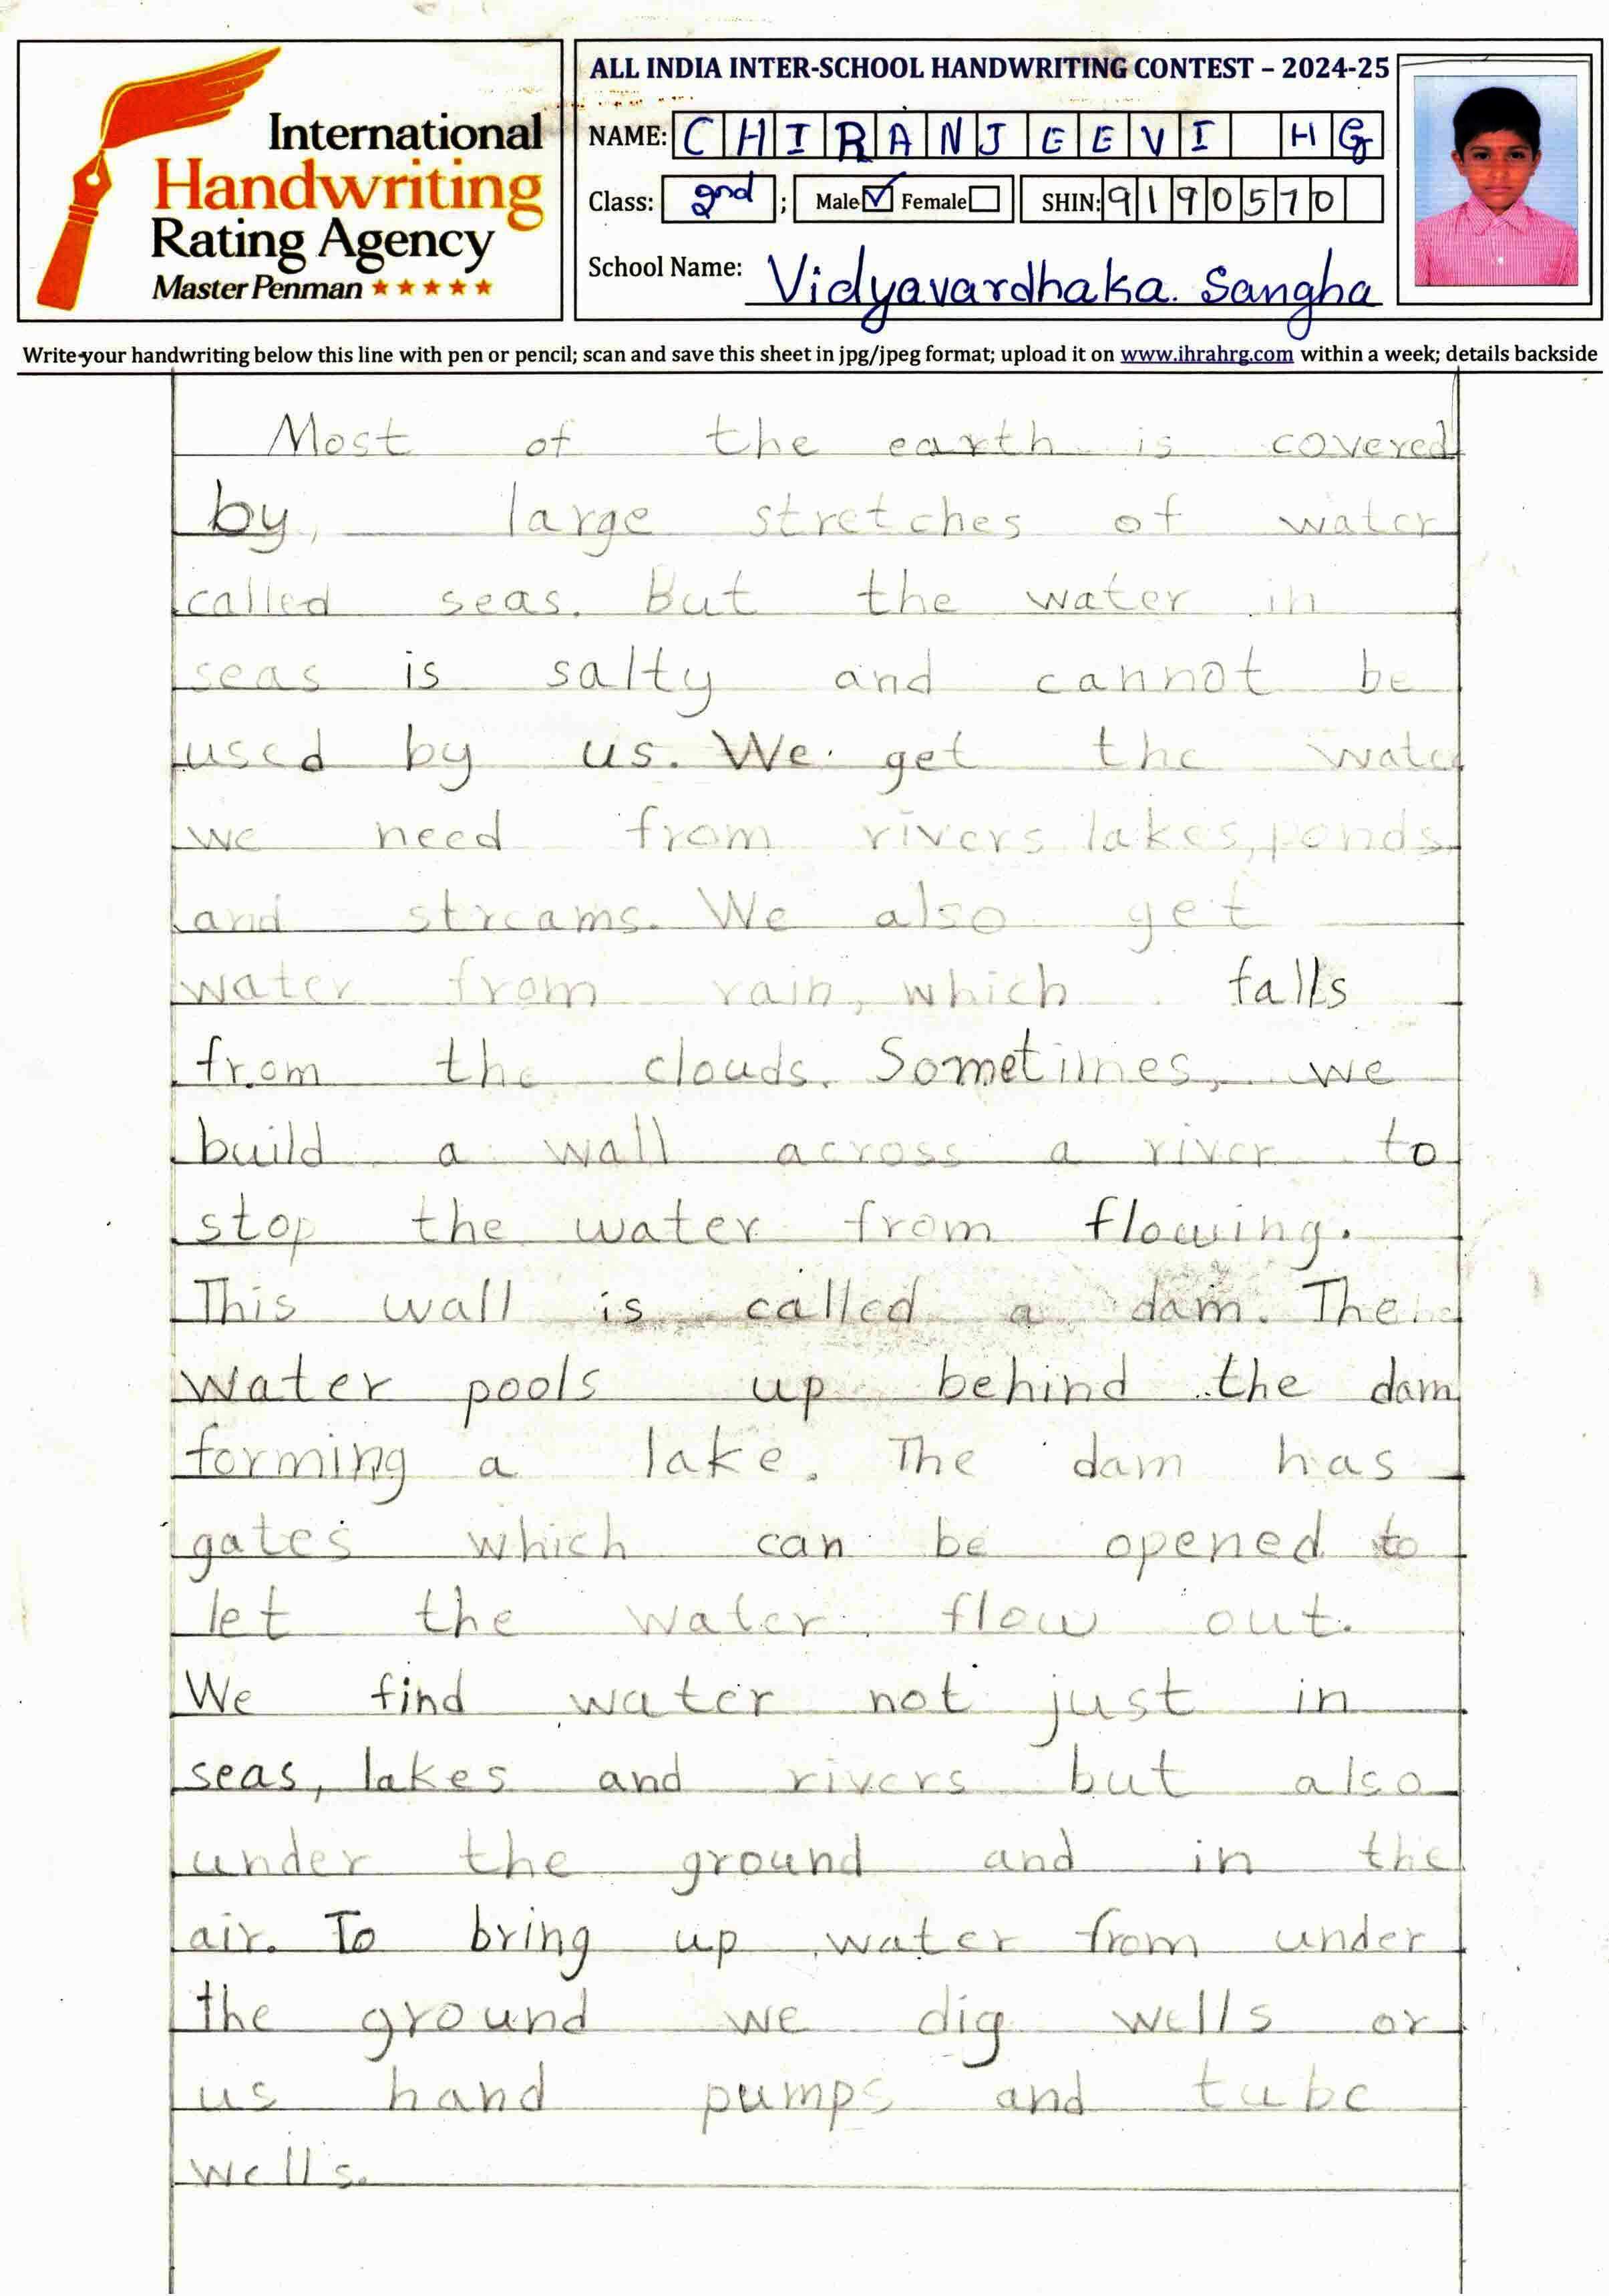 International
Handwriting
Rating Agency
Master Penman ★★★★★
ALL INDIA INTER-SCHOOL HANDWRITING CONTEST – 2024-25
NAME: CHIRANJEEVI HG
Class: 2nd ; Male ☑ Female ☐ SHIN: 9190570
School Name: Vidyavardhaka. Sangha
Write your handwriting below this line with pen or pencil; scan and save this sheet in jpg/jpeg format; upload it on www.ihrahrg.com within a week; details backside
Most of the earth is covered
by, large stretches of water
called seas. But the water in
seas is salty and cannot be
used by us. We get the wate
we need from rivers lakes, ponds
and streams. We also get
water from rain, which falls
from the clouds. Sometimes, we
build a wall across a river to
stop the water from flowing.
This wall is called a dam. The
water pools up behind the dam
forming a lake. The dam has
gates which can be opened to
let the water flow out.
We find water not just in
seas, lakes and rivers but also
under the ground and in the
air. To bring up water from under
the ground we dig wells or
us hand pumps and tube
wells.